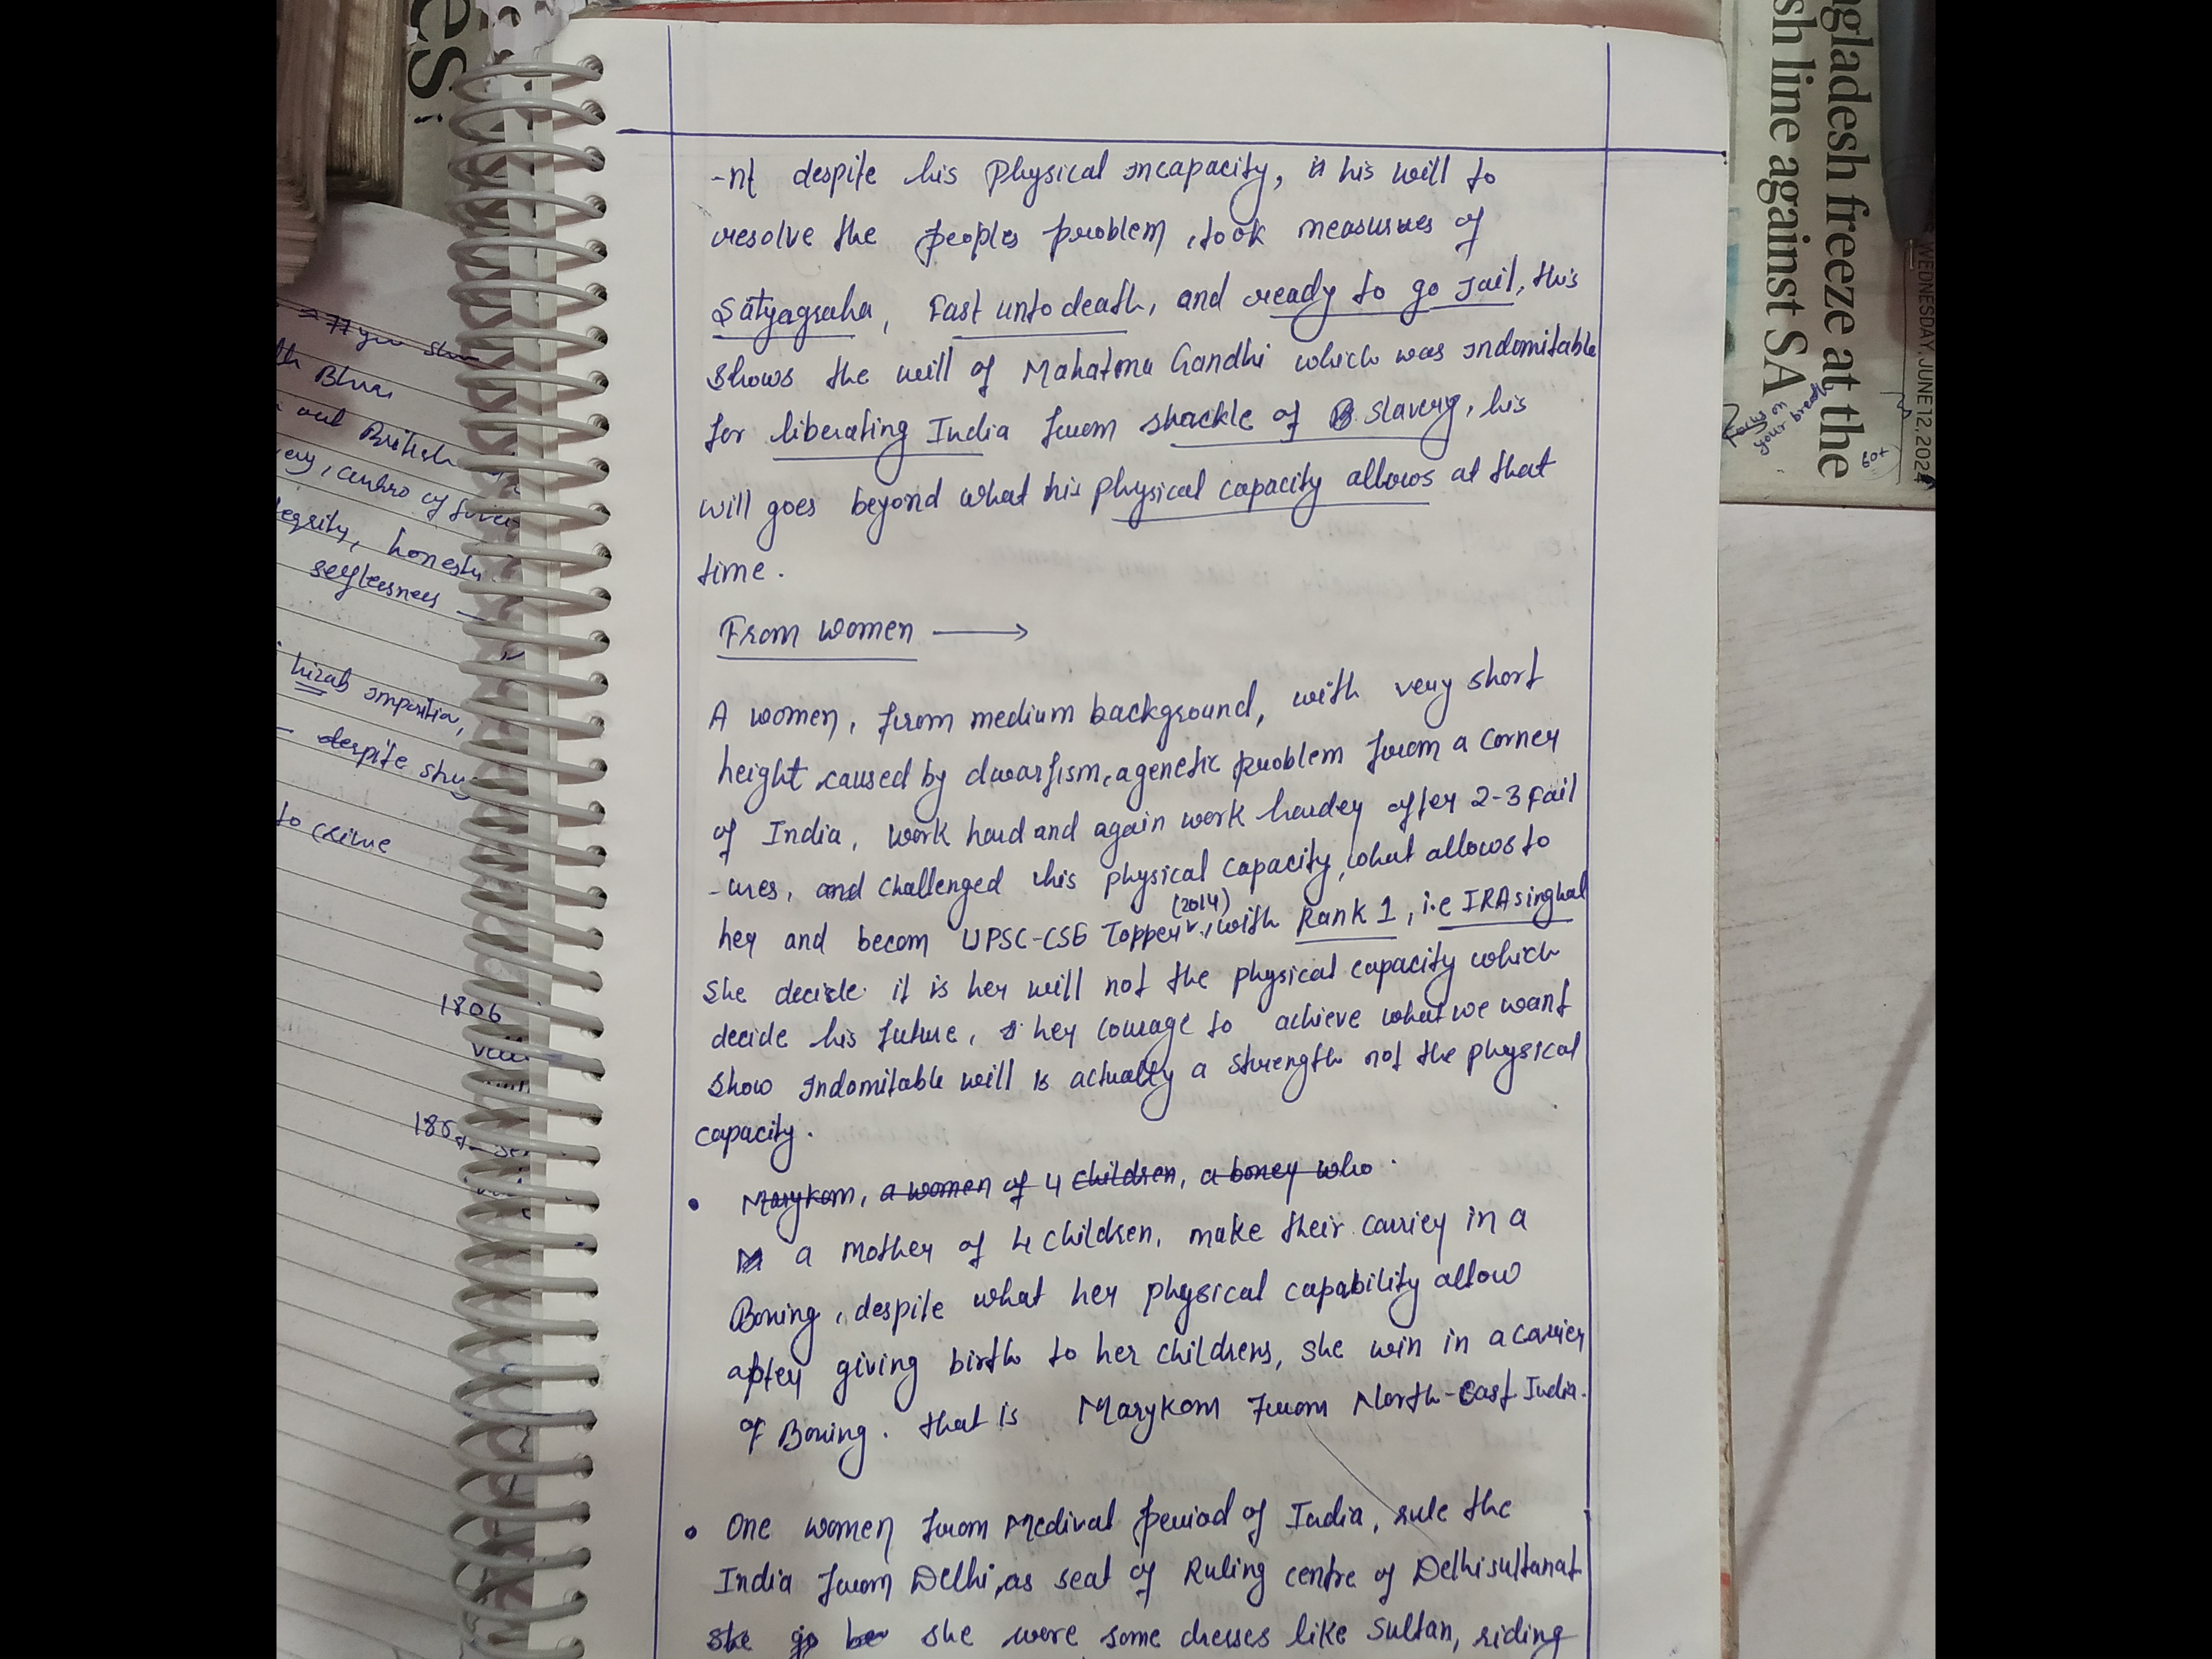 -nt despite his Physical incapacity, his will to
resolve the peoples problem, took measures of
Satyagraha, Fast unto death, and ready to go Jail, this
shows the will of Mahatma Gandhi which was indomitable
for liberating India from shackle of B slavery, his
will goes beyond what his physical capacity allows at that
time.
From women →
A women, from medium background, with very short
height caused by dwarfism, a genetic problem from a corner
of India, work hard and again work harder after 2-3 fail
-ures, and challenged this physical capacity, what allows to
(2014)
her and becom UPSC-CSE Topper, with Rank 1, i.e IRA singhal
she decide it is her will not the physical capacity which
decide his future, her courage to achieve what we want
show indomitable will is actually a strength not the physical
capacity.
• Marykom, a women of 4 children, a boxer who
a mother of 4 children, make their carrier in a
Boxing, despite what her physical capability allow
after giving birth to her childrens, she win in a carrier
of Boxing. that is Marykom from North-East India.
• One women from Medival period of India, rule the
India from Delhi, as seat of Ruling centre of Delhi sultanat
she go be she were some dresses like Sultan, riding
es:
ngladesh freeze at the
sh line against SA
WEDNESDAY, JUNE 12, 2024
Focus on
your breath
60+
th Blue
out British
integrity, honesty
seylessness -
hizab imposition,
- despite
to crime
1806